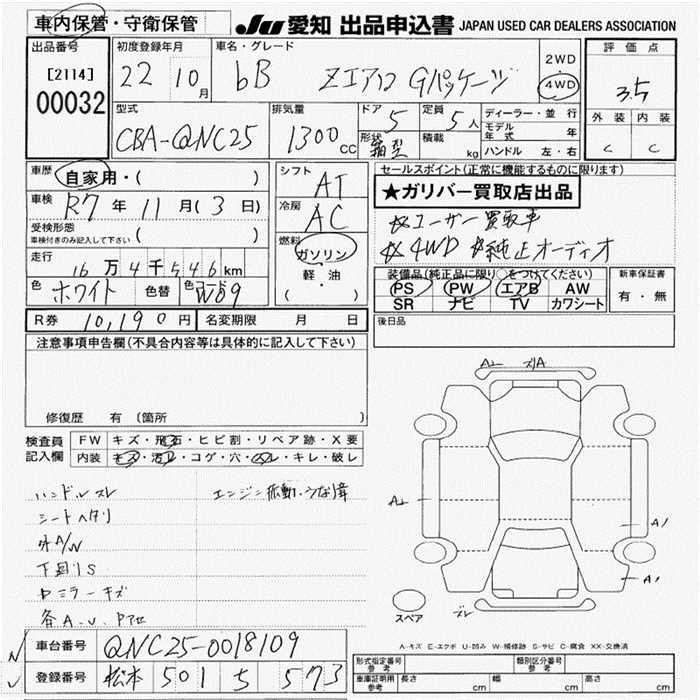 車内保管・守衛保管
JU 愛知 出品申込書 JAPAN USED CAR DEALERS ASSOCIATION
出品番号
[2114]
00032
初度登録年月
22 10月
車名・グレード
bB Zエアロ Gパッケージ
2WD
4WD
評価点
3.5
外装 内装
C C
型式
CBA-QNC25
排気量
1300cc
ドア 5
形状 箱型
定員 5人
積載 kg
ディーラー・並行
モデル年式 年
ハンドル 左・右
車歴 自家用・( )
車検 R7年11月(3日)
受検形態
車検付きのみ記入して下さい ( )
走行 16万4千546km
色 ホワイト 色替 色コード W09
シフト AT
冷房 AC
燃料 ガソリン
軽・油
( )
セールスポイント(正常に機能するものに限ります)
★ガリバー買取店出品
☆ユーザー買取車
☆4WD ☆純正オーディオ
装備品(純正品に限り○をつけてください)
PS PW エアB AW
SR ナビ TV カワシート
新車保証書
有・無
R券 10,190円 名変期限 月 日
後日品
注意事項申告欄(不具合内容等は具体的に記入して下さい)
修復歴 有 (箇所 )
検査員記入欄
FW キズ・飛石・ヒビ割・リペア跡・X要
内装 キズ・汚レ・コゲ・穴・スレ・キレ・破レ
ハンドルスレ
シートヘタリ
外A/W
下廻りS
ロミラーキズ
各A.U.Pアセ
エンジン振動・うなり障
A2 ズリA
A2
A1
A1
ズレ
スペア
A-キズ E-エクボ U-凹み W-補修跡 S-サビ C-腐食 XX-交換済
車台番号 QNC25-0018109
登録番号 松本 501 ち 573
形式指定番号 参考
類別区分番号 参考
車庫証明用 参考 長さ cm 幅 cm 高さ cm